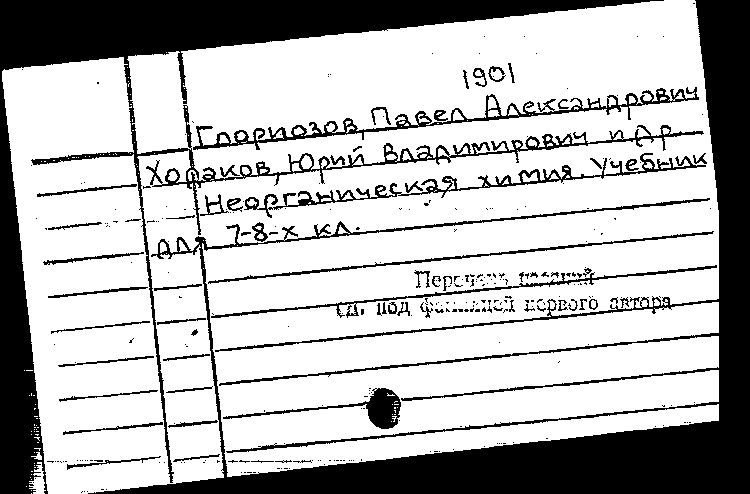 1901
Глориозов, Павел Александрович
Ходаков, Юрий Владимирович и др.
Неорганическая химия. Учебник
для 7-8-х кл.
Перечень изданий
см. под фамилией первого автора